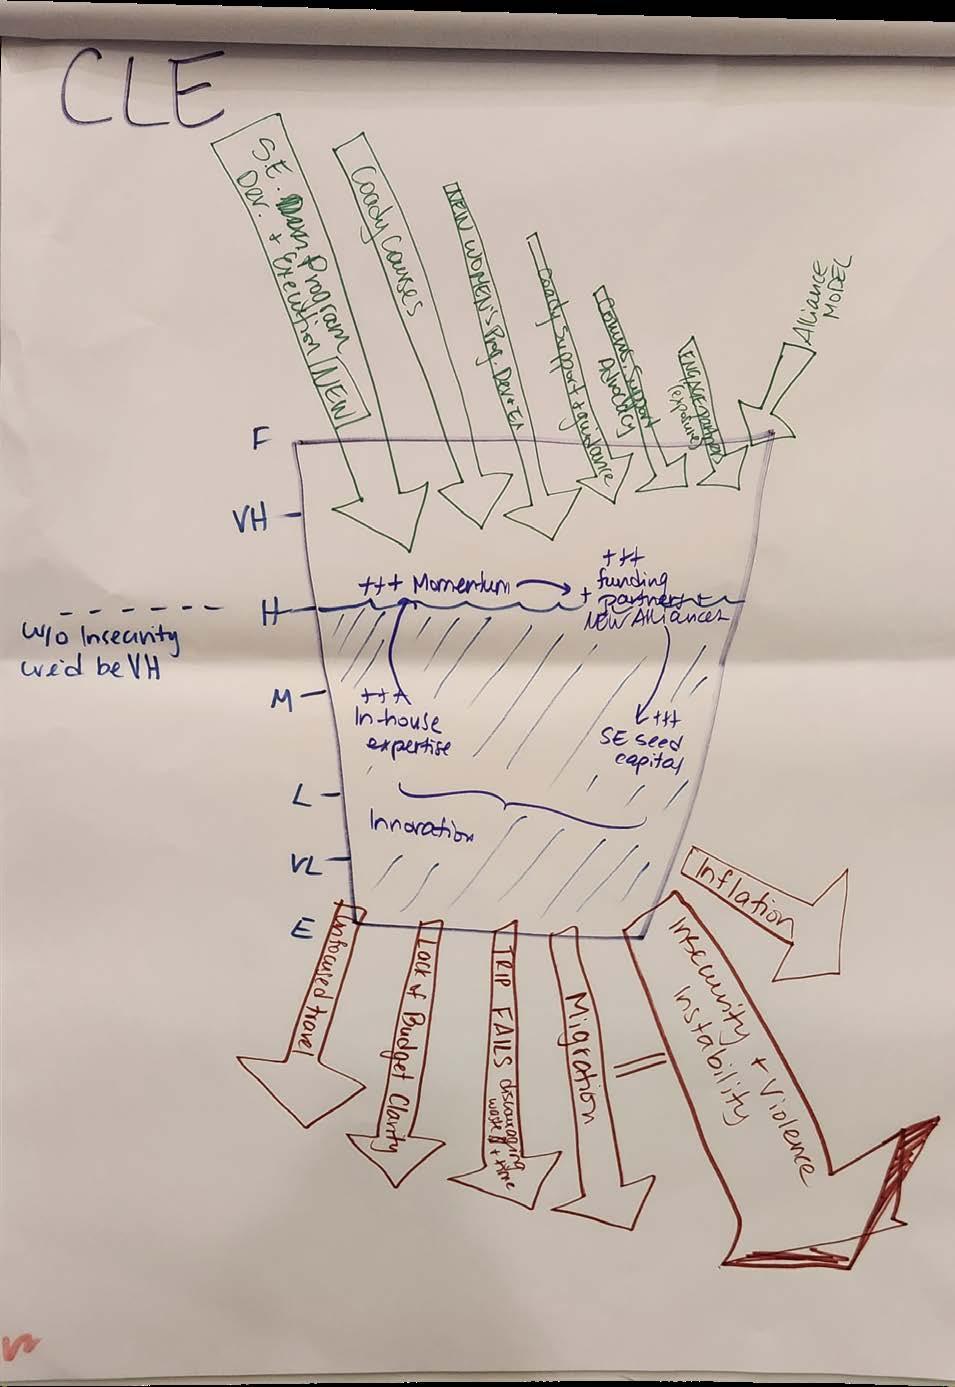 CLE
S.E. Program
Dev. + Execution NEW
Coady Courses
NEW WOMEN'S Prog. Dev + Ex
Coady Support + guidance
Comms. Support
Advocacy
ENGAGE partners
(exposure)
Alliance
MODEL
F
VH
H
M
L
VL
E
w/o Insecurity
we'd be VH
+++ Momentum
+++
+ funding
partners +
NEW Alliances
+++
In-house
expertise
+++
SE seed
capital
Innovation
Unfocused travel
Lack of Budget Clarity
TRIP FAILS discouraging
waste $ + time
Migration
Insecurity + Violence
Instability
Inflation